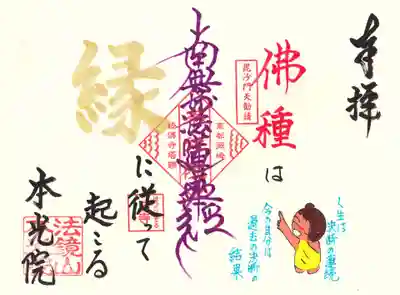 奉拝
佛種は
毘沙門天勧請
南無妙法蓮華経
縁
に従って
起こる
本光院
法鏡山
人生は
決断の連続
今の自分は
過去の決断の
結果